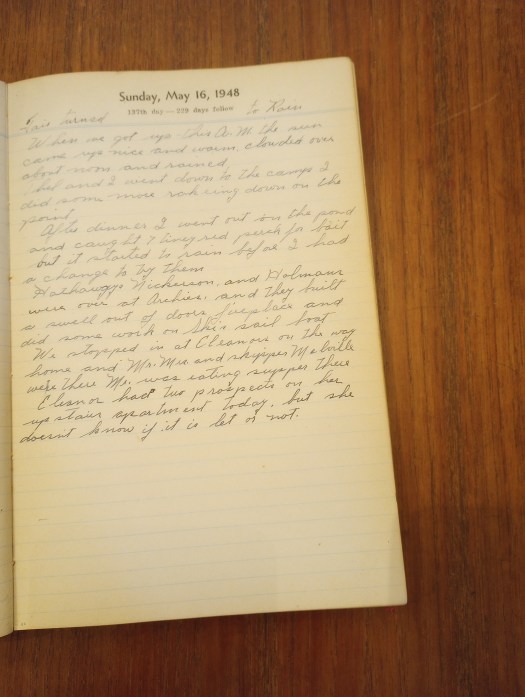 Sunday, May 16, 1948
137th day — 229 days follow
Fair turned to Rain
When we got up this A.M. the sun
came up nice and warm, clouded over
about noon and rained.
Chet and I went down to the camps I
did some more raking down on the
point
After dinner I went out on the pond
and caught 7 tiney red perch for bait
but it started to rain before I had
a change to try them
Hathaways Nickerson, and Holmans
were over at Archies, and they built
a swell out of doors fireplace and
did some work on this sail boat
We stopped in at Eleanors on the way
home and Mr. Mrs. and skipper Melville
were there Mr. was eating supper there
Eleanor had two prospects on her
up stair apartment today, but she
doesnt know if it is let or not.